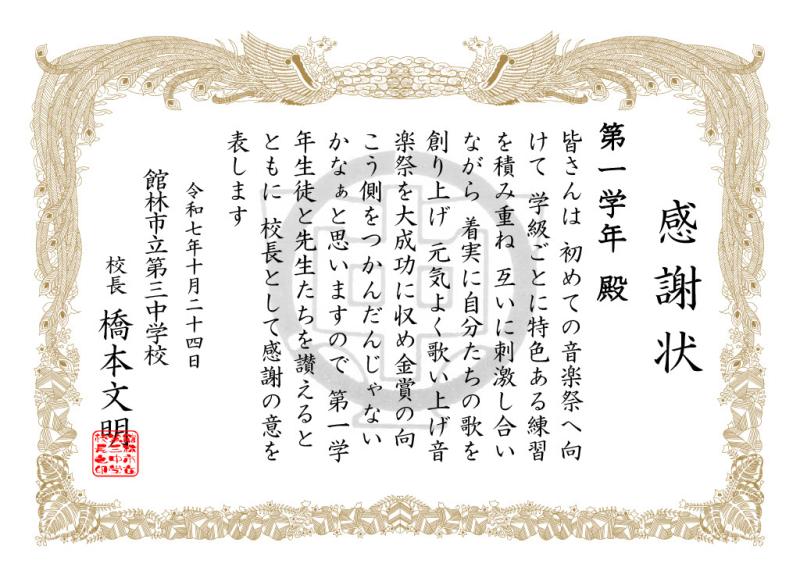 感謝状
第一学年 殿
皆さんは 初めての音楽祭へ向
けて 学級ごとに特色ある練習
を積み重ね 互いに刺激し合い
ながら 着実に自分たちの歌を
創り上げ 元気よく歌い上げ音
楽祭を大成功に収め金賞の向
こう側をつかんだんじゃない
かなぁと思いますので 第一学
年生徒と先生たちを讃えると
ともに 校長として感謝の意を
表します
令和七年十月二十四日
館林市立第三中学校
校長 橋本文明